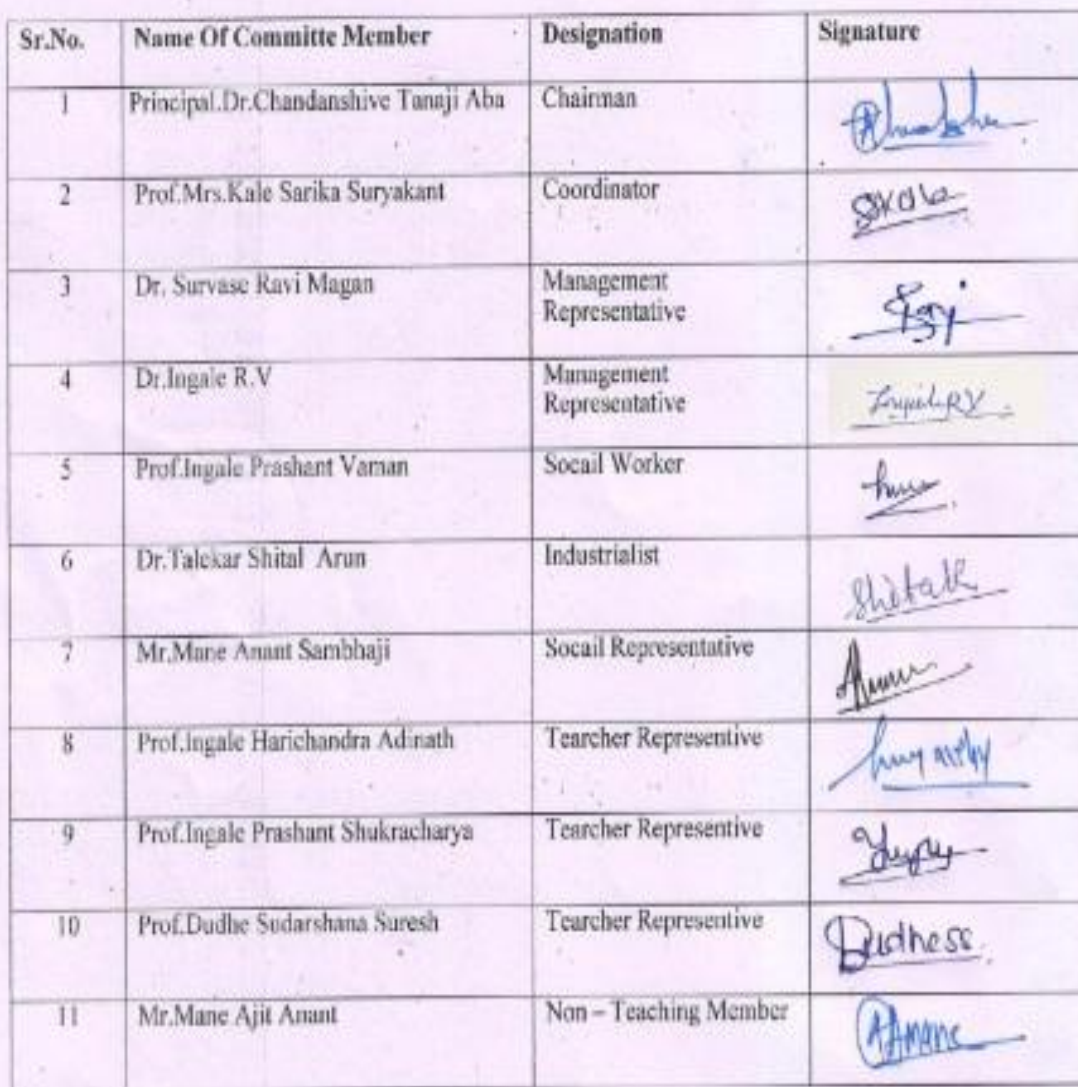 Sr.No. Name Of Committe Member Designation Signature
1 Principal.Dr.Chandanshive Tanaji Aba Chairman
2 Prof.Mrs.Kale Sarika Suryakant Coordinator
3 Dr. Survase Ravi Magan Management
Representative
4 Dr.Ingale R.V Management
Representative
5 Prof.Ingale Prashant Vaman Socail Worker
6 Dr.Talekar Shital Arun Industrialist
Shitalk
7 Mr.Mane Anant Sambhaji Socail Representative
8 Prof.Ingale Harichandra Adinath Tearcher Representive
9 Prof.Ingale Prashant Shukracharya Tearcher Representive
10 Prof.Dudhe Sudarshana Suresh Tearcher Representive
Dudhess.
11 Mr.Mane Ajit Anant Non – Teaching Member
AAMane